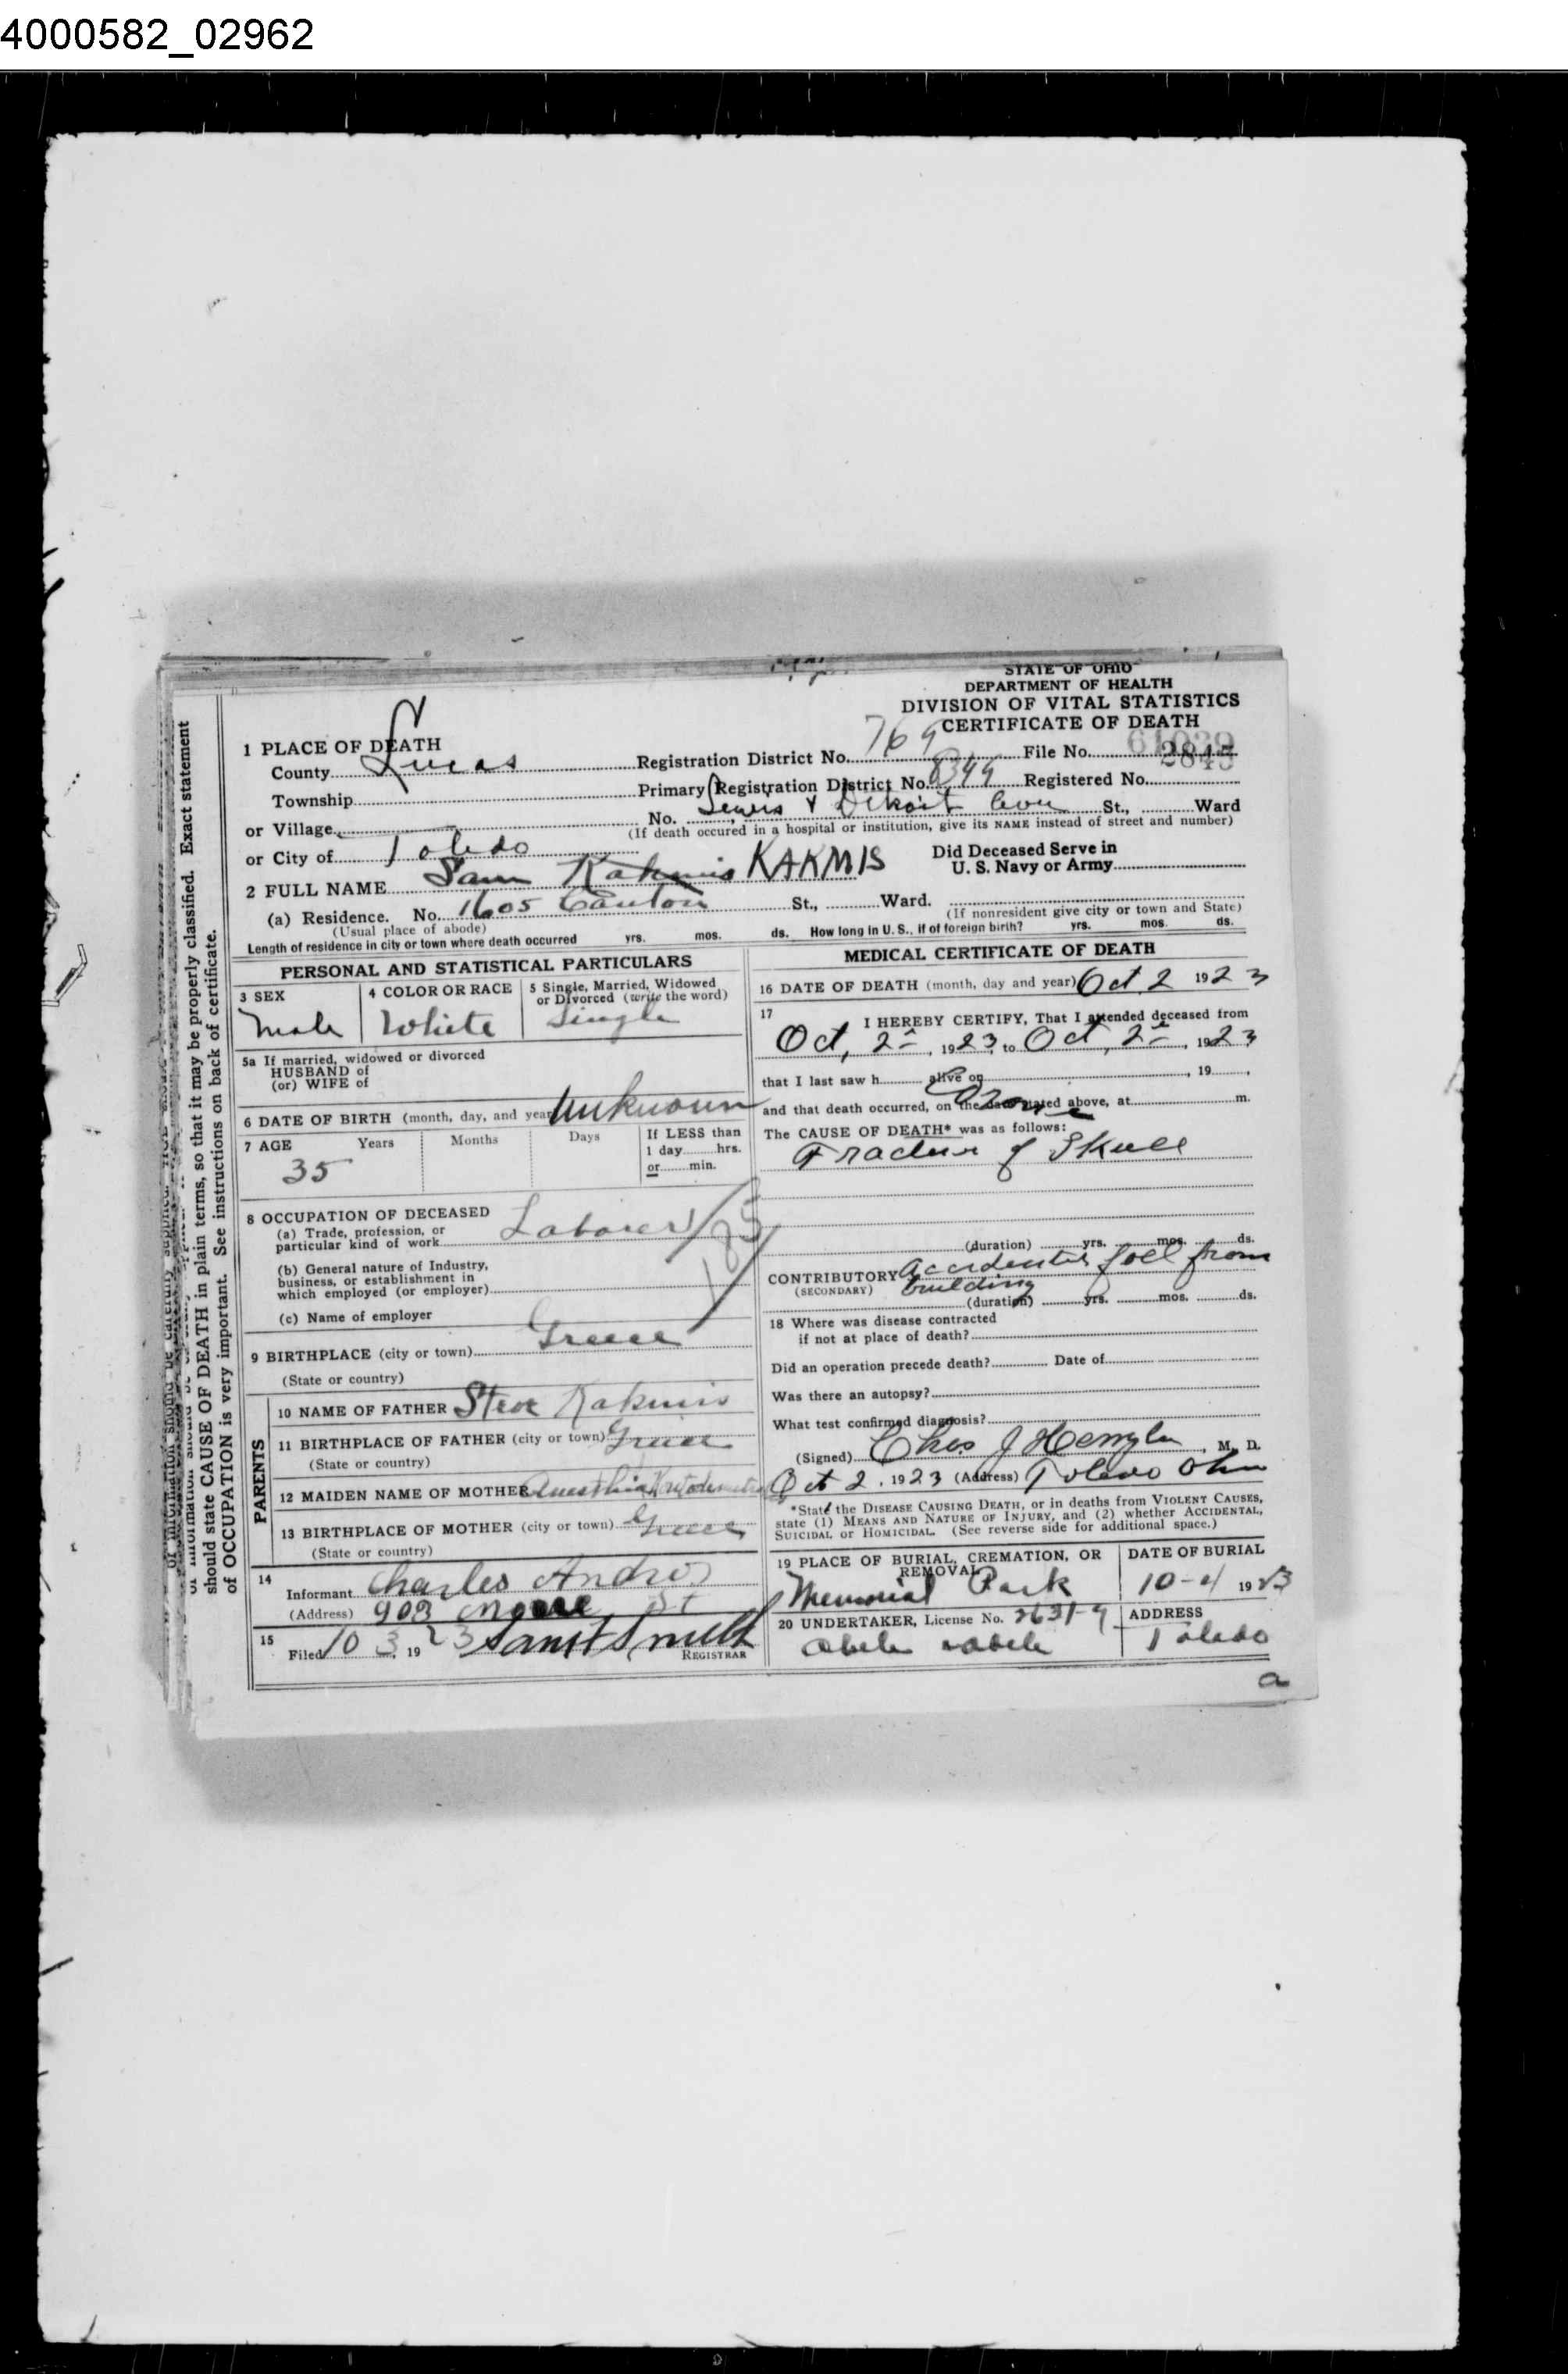 4000582_02962
STATE OF OHIO
DEPARTMENT OF HEALTH
DIVISION OF VITAL STATISTICS
CERTIFICATE OF DEATH
1 PLACE OF DEATH
County Lucas Registration District No. 769 File No. 61039
Township Primary Registration District No. Registered No. 2845
or Village No. & Detroit Ave St., Ward
(If death occured in a hospital or institution, give its NAME instead of street and number)
or City of Toledo
2 FULL NAME Sam Kakmis KAKMIS
Did Deceased Serve in
U. S. Navy or Army
(a) Residence. No. 1605 Canton St., Ward.
(Usual place of abode) (If nonresident give city or town and State)
Length of residence in city or town where death occurred yrs. mos. ds. How long in U. S., if of foreign birth? yrs. mos. ds.
PERSONAL AND STATISTICAL PARTICULARS
3 SEX
Male
4 COLOR OR RACE
White
5 Single, Married, Widowed
or Divorced (write the word)
Single
5a If married, widowed or divorced
HUSBAND of
(or) WIFE of
6 DATE OF BIRTH (month, day, and year) Unknown
7 AGE Years Months Days
35
If LESS than
1 day hrs.
or min.
8 OCCUPATION OF DECEASED
(a) Trade, profession, or
particular kind of work Laborer
(b) General nature of Industry,
business, or establishment in
which employed (or employer)
(c) Name of employer
9 BIRTHPLACE (city or town) Greece
(State or country)
PARENTS
10 NAME OF FATHER Steve Kakmis
11 BIRTHPLACE OF FATHER (city or town) Greece
(State or country)
12 MAIDEN NAME OF MOTHER
13 BIRTHPLACE OF MOTHER (city or town) Greece
(State or country)
14
Informant Charles Andros
(Address) 903 Monroe St
15
Filed 10 3, 1923
REGISTRAR
MEDICAL CERTIFICATE OF DEATH
16 DATE OF DEATH (month, day and year) Oct 2 1923
17
I HEREBY CERTIFY, That I attended deceased from
Oct, 2, 1923, to Oct, 2, 1923
that I last saw h alive on , 19 ,
and that death occurred, on the date stated above, at m.
The CAUSE OF DEATH* was as follows:
Fracture of Skull
(duration) yrs. mos. ds.
CONTRIBUTORY Accidental fall from
(SECONDARY) building
(duration) yrs. mos. ds.
18 Where was disease contracted
if not at place of death?
Did an operation precede death? Date of
Was there an autopsy?
What test confirmed diagnosis?
(Signed) Chas J , M. D.
Oct 2, 1923 (Address) Toledo Ohio
*State the DISEASE CAUSING DEATH, or in deaths from VIOLENT CAUSES,
state (1) MEANS AND NATURE OF INJURY, and (2) whether ACCIDENTAL,
SUICIDAL or HOMICIDAL. (See reverse side for additional space.)
19 PLACE OF BURIAL, CREMATION, OR
REMOVAL
Memorial Park
DATE OF BURIAL
10-4 1923
20 UNDERTAKER, License No.
ADDRESS
Toledo
a
should state CAUSE OF DEATH in plain terms, so that it may be properly classified. Exact statement
of OCCUPATION is very important. See instructions on back of certificate.